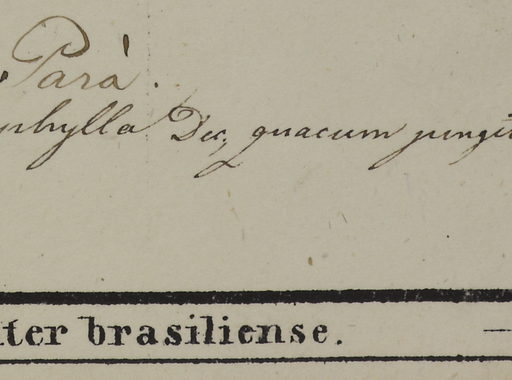 Parà.
phylla Dec, quacum jungit
iter brasiliense.